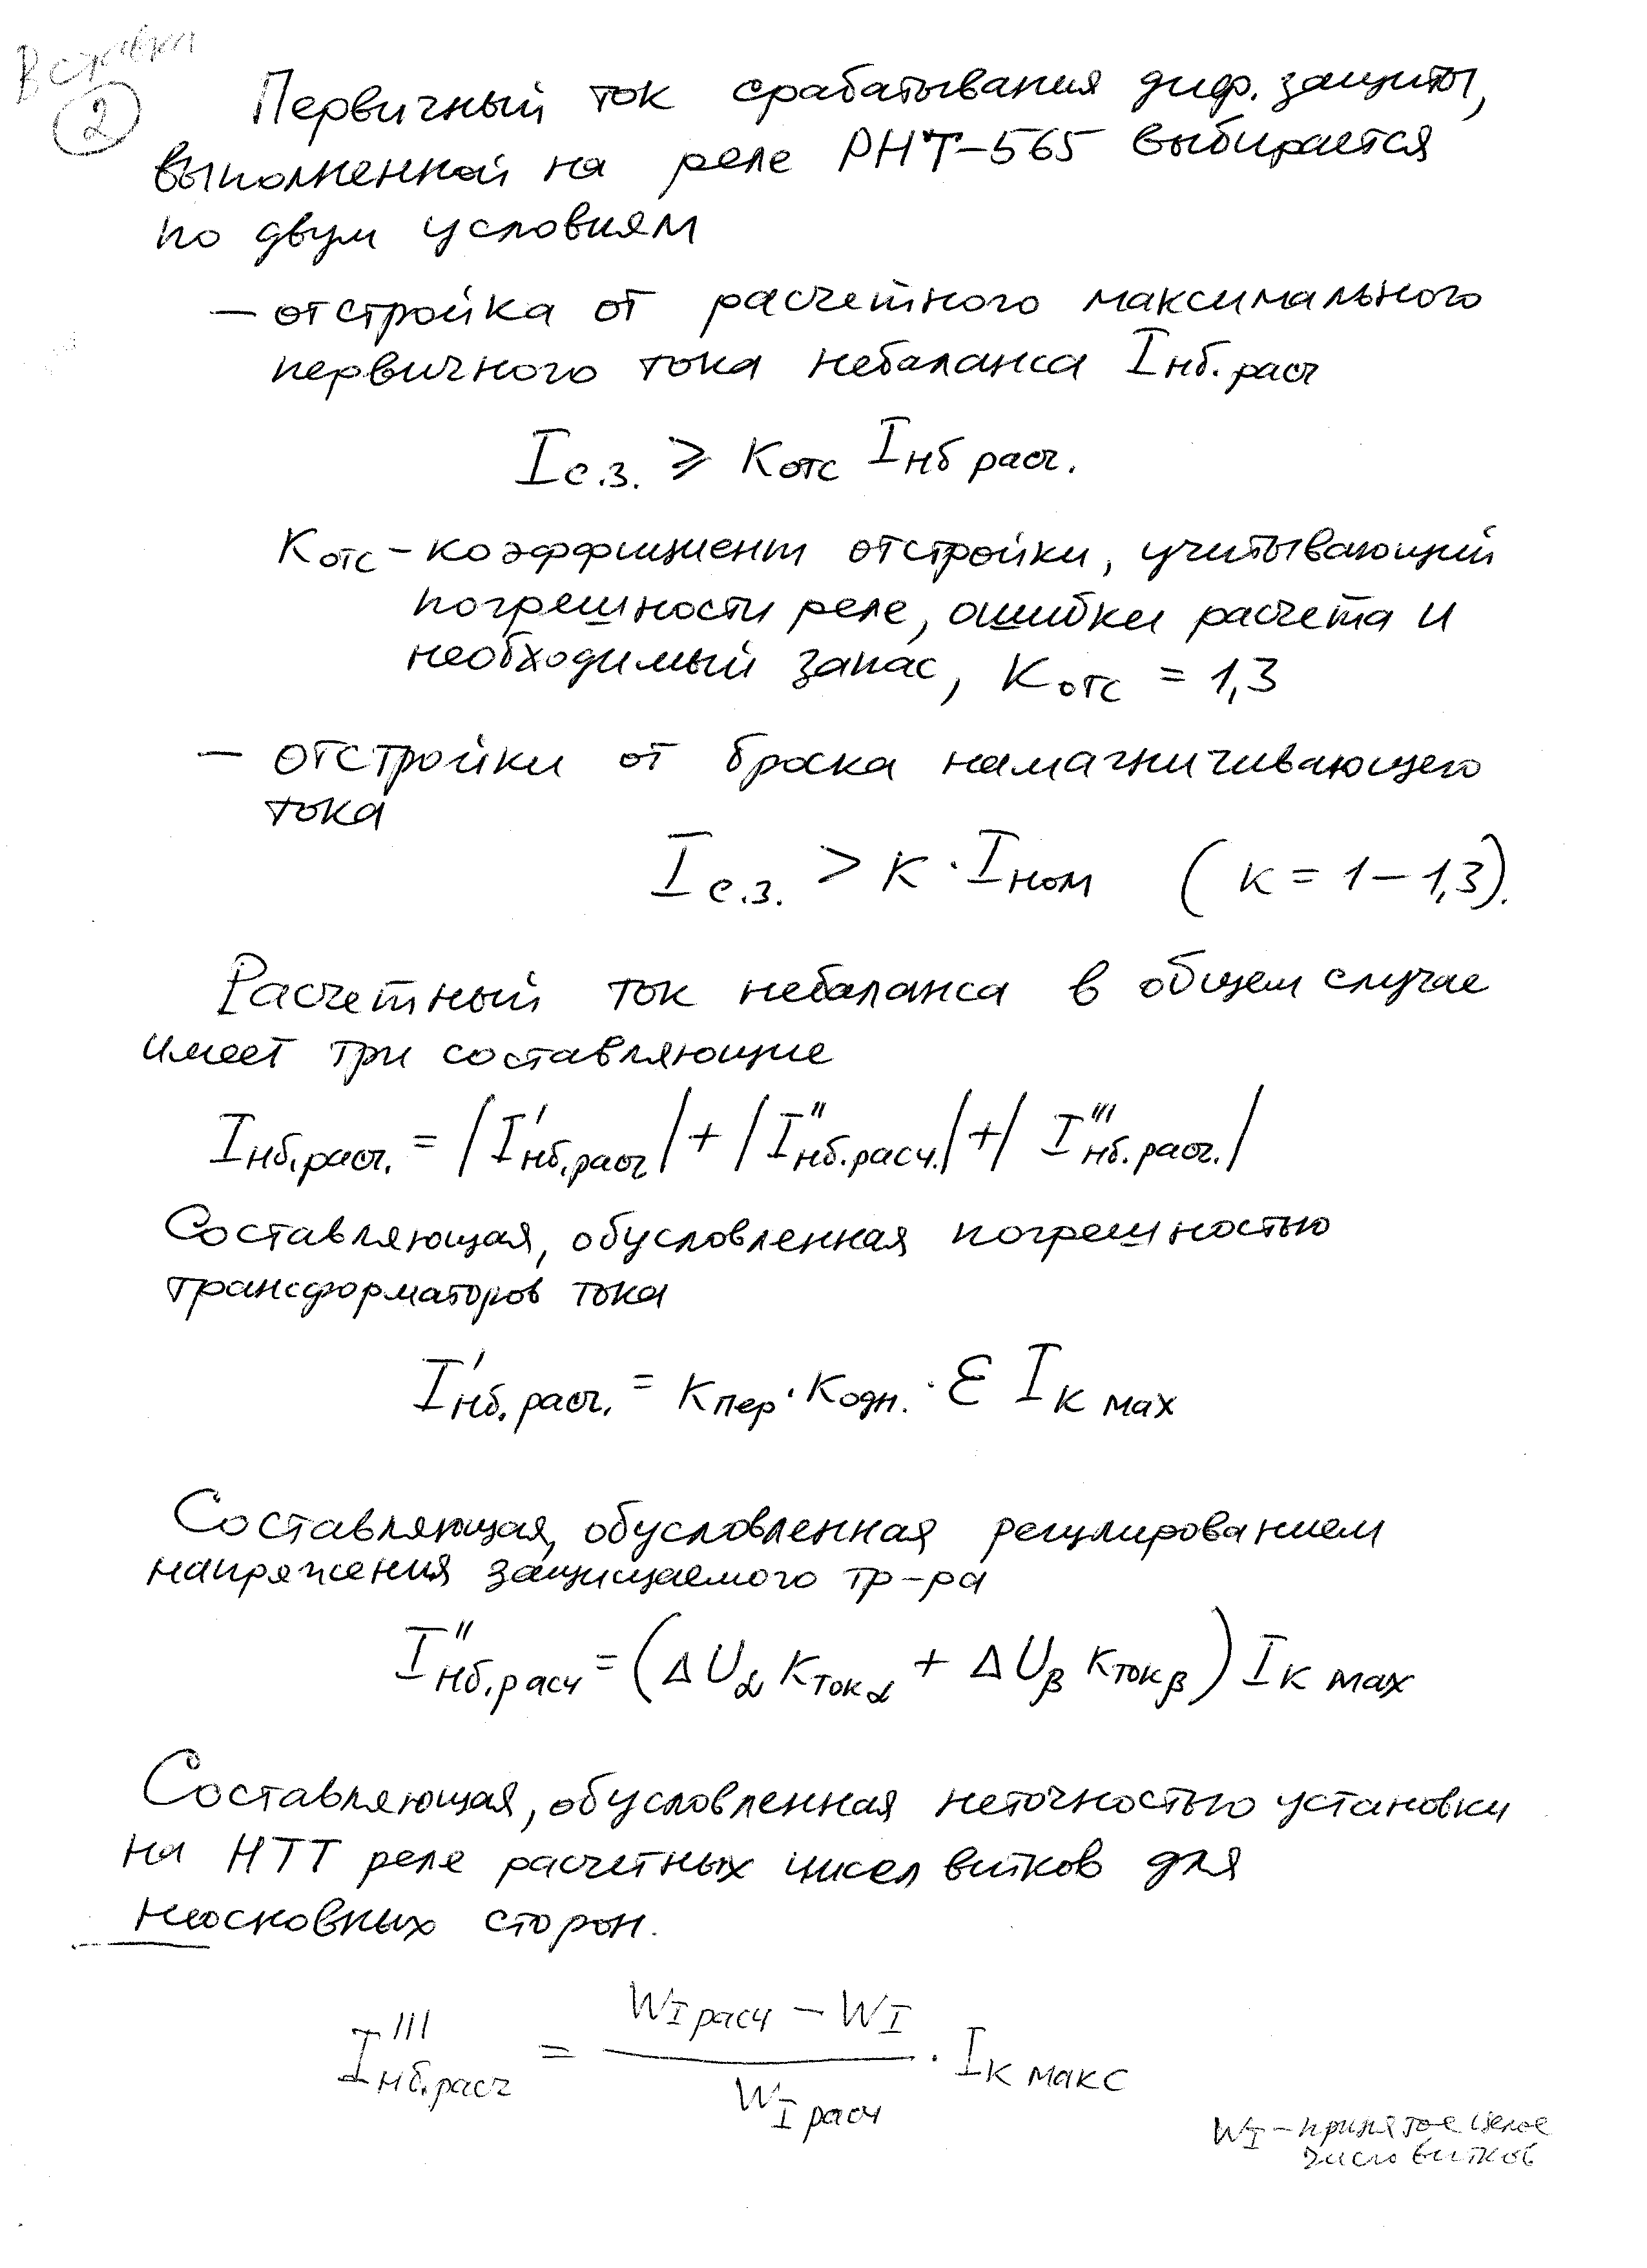 Вставка
2
Первичный ток срабатывания диф. защиты,
выполненной на реле РНТ-565 выбирается
по двум условиям
— отстройка от расчетного максимального
первичного тока небаланса Iнб. расч
Iс.з. ⩾ Котс Iнб расч.
Котс – коэффициент отстройки, учитывающий
погрешности реле, ошибки расчета и
необходимый запас, Котс = 1,3
— отстройки от броска намагничивающего
тока
Iс.з. > К · Iном ( к = 1 – 1,3).
Расчетный ток небаланса в общем случае
имеет три составляющие
Iнб.расч. = |I'нб.расч| + |I''нб.расч.| + |I'''нб.расч.|
Составляющая, обусловленная погрешностью
трансформаторов тока
I'нб.расч. = Кпер · Кодн. · Ɛ Iк мах
Составляющая, обусловленная регулированием
напряжения защищаемого тр-ра
I''нб.расч = (ΔUα Kток α + ΔUβ Kток β) Iк мах
Составляющая, обусловленная неточностью установки
на НТТ реле расчетных чисел витков для
неосновных сторон.
I'''нб.расч = (WI расч – WI) / WI расч · Iк макс
WI – принятое целое
число витков